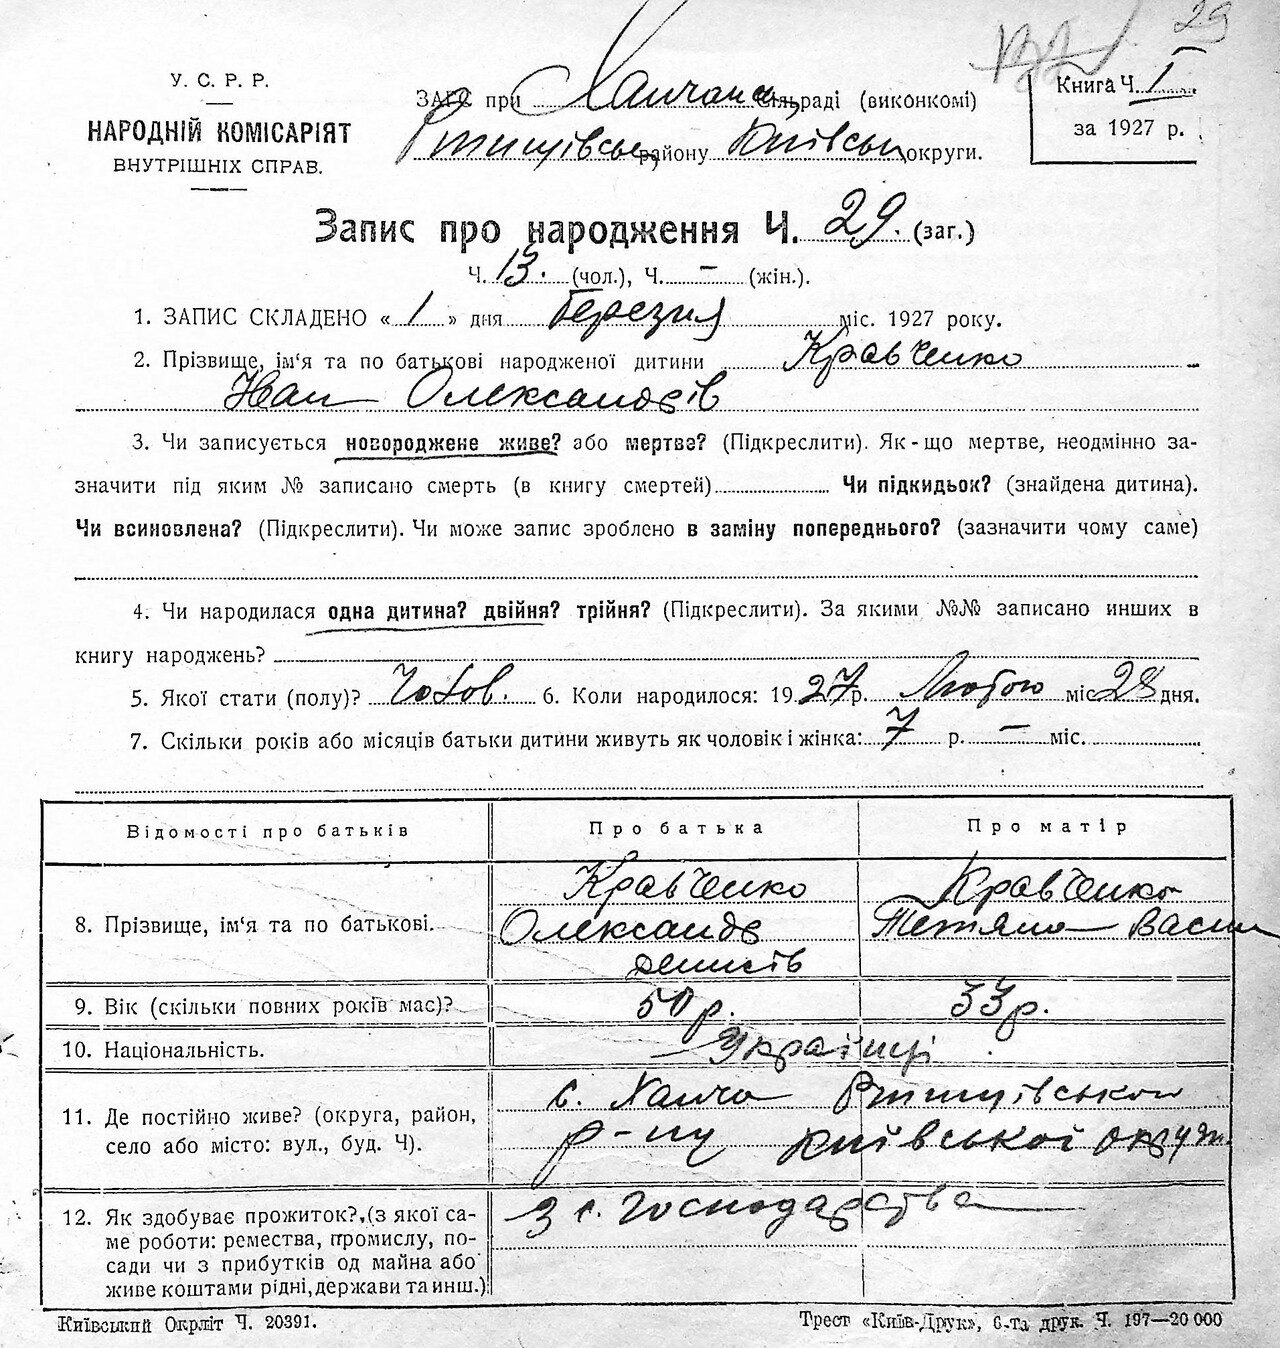 29
У. С. Р. Р.
НАРОДНІЙ КОМІСАРІЯТ
ВНУТРІШНІХ СПРАВ.
ЗАГС при Ханчанськ сільраді (виконкомі)
Ртищівськ району Київськ округи.
Книга Ч. I
за 1927 р.
Запис про народження Ч. 29. (заг.)
Ч. 13. (чол.), Ч. – (жін.).
1. ЗАПИС СКЛАДЕНО « 1 » дня березня міс. 1927 року.
2. Прізвище, ім‘я та по батькові народженої дитини Кравченко
Іван Олександрів
3. Чи записується новороджене живе? або мертве? (Підкреслити). Як-що мертве, неодмінно за-
значити під яким № записано смерть (в книгу смертей) Чи підкидьок? (знайдена дитина).
Чи всиновлена? (Підкреслити). Чи може запис зроблено в заміну попереднього? (зазначити чому саме)
4. Чи народилася одна дитина? двійня? трійня? (Підкреслити). За якими №№ записано инших в
книгу народжень?
5. Якої стати (полу)? Чолов. 6. Коли народилося: 1927 р. Лютого міс 28 дня.
7. Скільки років або місяців батьки дитини живуть як чоловік і жінка: 7 р. – міс.
Відомості про батьків Про батька Про матір
8. Прізвище, ім‘я та по батькові. Кравченко Олександр Денисів Кравченко Тетяна Васил
9. Вік (скільки повних років має)? 50 р. 33 р.
10. Національність. Українці
11. Де постійно живе? (округа, район, с. Ханча Ртищівського
село або місто: вул., буд. Ч). р-ну Київської округи
12. Як здобуває прожиток? (з якої са- З с. господарства
ме роботи: ремества, промислу, по-
сади чи з прибутків од майна або
живе коштами рідні, держави та инш.)
Київський Окрліт Ч. 20391.
Трест «Київ-Друк», 6-та друк. Ч. 197—20 000